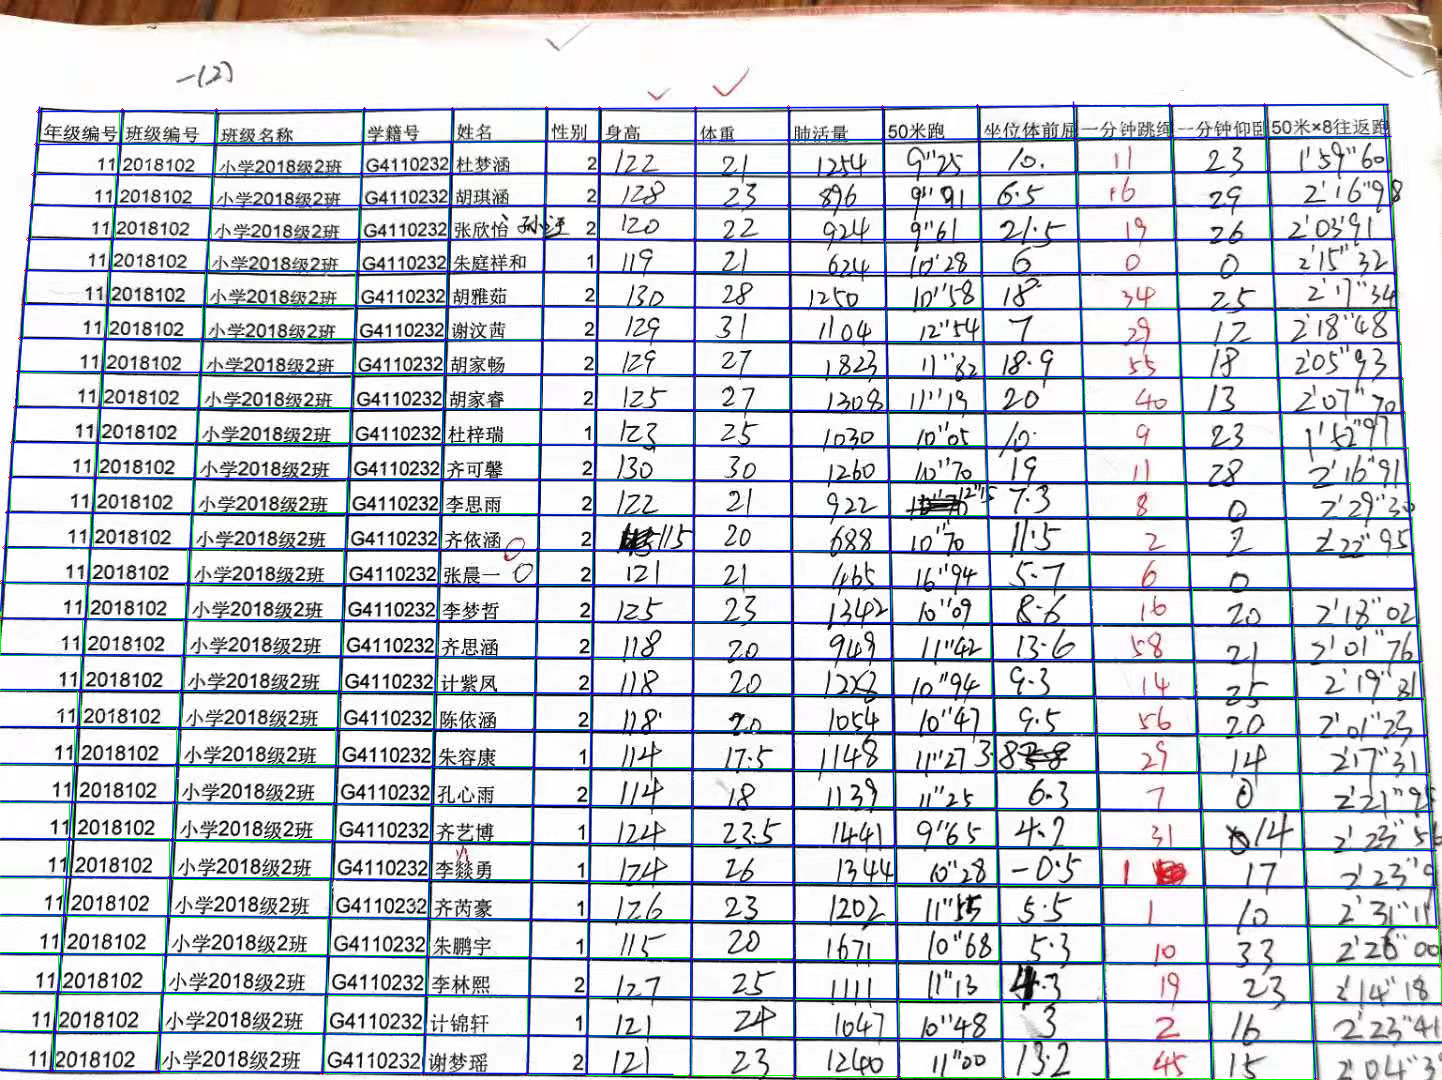 一(2)
年级编号 班级编号 班级名称 学籍号 姓名 性别 身高 体重 肺活量 50米跑 坐位体前屈 一分钟跳绳 一分钟仰卧 50米×8往返跑
11 2018102 小学2018级2班 G4110232 杜梦涵 2 122 21 1254 9"25 10. 11 23 1'59"60
11 2018102 小学2018级2班 G4110232 胡琪涵 2 128 23 896 9"91 6.5 16 29 2'16"98
11 2018102 小学2018级2班 G4110232 张欣怡 2 120 22 924 9"61 21.5 19 26 2'03'91
11 2018102 小学2018级2班 G4110232 朱庭祥和 1 119 21 624 10'28 6 0 0 2'15"32
11 2018102 小学2018级2班 G4110232 胡雅茹 2 130 28 1250 10"58 18 34 25 2'17"34
11 2018102 小学2018级2班 G4110232 谢汶茜 2 129 31 1104 12"54 7 29 12 2'18"48
11 2018102 小学2018级2班 G4110232 胡家畅 2 129 27 1823 11"82 18.9 55 18 2'05"93
11 2018102 小学2018级2班 G4110232 胡家睿 2 125 27 1308 11"19 20 40 13 2'07"70
11 2018102 小学2018级2班 G4110232 杜梓瑞 1 123 25 1030 10"05 10. 9 23 1'52"97
11 2018102 小学2018级2班 G4110232 齐可馨 2 130 30 1260 10"70 19 11 28 2'16"91
11 2018102 小学2018级2班 G4110232 李思雨 2 122 21 922 12"15 7.3 8 0 2'29"30
11 2018102 小学2018级2班 G4110232 齐依涵 2 115 20 688 10"70 11.5 2 2 2'22"95
11 2018102 小学2018级2班 G4110232 张晨一 2 121 21 465 16"94 5.7 6 0
11 2018102 小学2018级2班 G4110232 李梦哲 2 125 23 1342 10"09 8.6 16 20 2'18"02
11 2018102 小学2018级2班 G4110232 齐思涵 2 118 20 949 11"42 13.6 58 21 2'01"76
11 2018102 小学2018级2班 G4110232 计紫凤 2 118 20 10"94 9.3 14 25 2'19"31
11 2018102 小学2018级2班 G4110232 陈依涵 2 118 20 1054 10"47 9.5 56 20 2'01"23
11 2018102 小学2018级2班 G4110232 朱容康 1 114 17.5 1148 11"27 3.8 29 14 2'17"31
11 2018102 小学2018级2班 G4110232 孔心雨 2 114 18 1139 11"25 6.3 7 0 2'21"
11 2018102 小学2018级2班 G4110232 齐艺博 1 124 23.5 1441 9"65 4.2 31 14 2'23"
11 2018102 小学2018级2班 G4110232 李燚勇 1 124 26 1344 10"28 -0.5 1 17 2'23"9
11 2018102 小学2018级2班 G4110232 齐芮豪 1 126 23 1202 11"55 5.5 1 10 2'31"11
11 2018102 小学2018级2班 G4110232 朱鹏宇 1 115 20 1671 10"68 5.3 10 33 2'26"00
11 2018102 小学2018级2班 G4110232 李林熙 2 127 25 1111 11"13 4.3 19 23 2'14"18
11 2018102 小学2018级2班 G4110232 计锦轩 1 121 24 1047 10"48 3 2 16 2'23"41
11 2018102 小学2018级2班 G4110232 谢梦瑶 2 121 23 1240 11"00 13.2 45 15 2'04"3